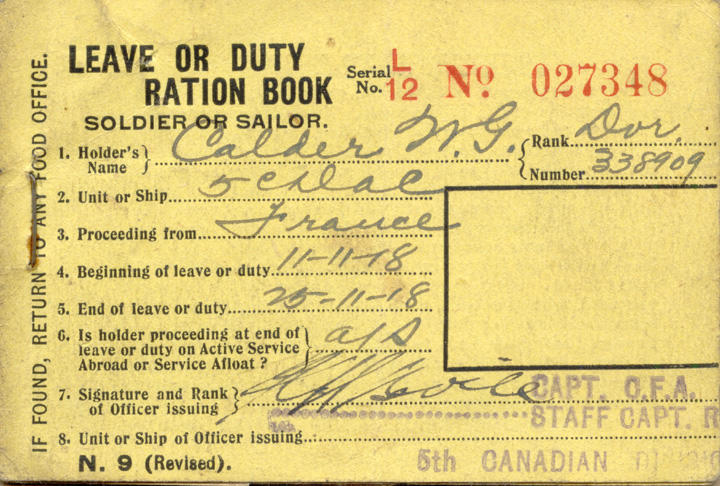 LEAVE OR DUTY
RATION BOOK
SOLDIER OR SAILOR.
Serial No. L/12 No. 027348
1. Holder's Name } Calder W.G. { Rank Dvr.
Number 338909
2. Unit or Ship 5 CDAC
3. Proceeding from France
4. Beginning of leave or duty 11-11-18
5. End of leave or duty 25-11-18
6. Is holder proceeding at end of
leave or duty on Active Service
Abroad or Service Afloat? } a/s
7. Signature and Rank
of Officer issuing }
CAPT. C.F.A.
STAFF CAPT. R
8. Unit or Ship of Officer issuing
5th CANADIAN
N. 9 (Revised).
IF FOUND, RETURN TO ANY FOOD OFFICE.